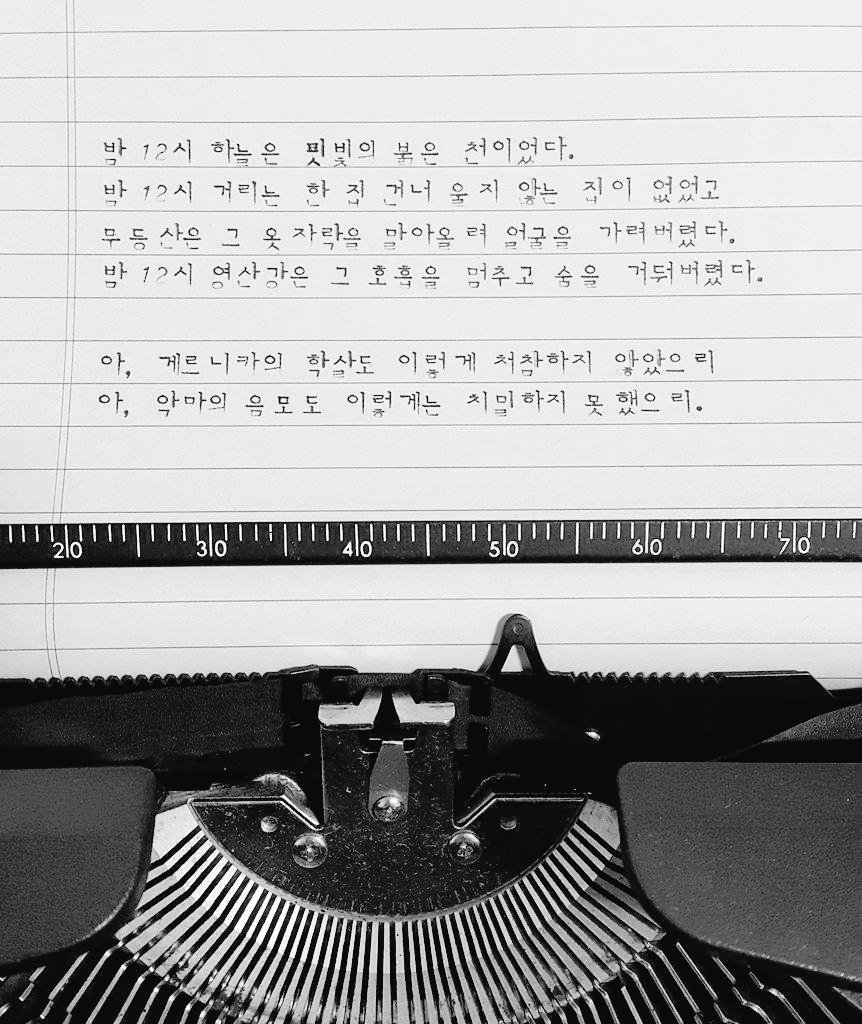 밤 12시 하늘은 핏빛의 붉은 천이었다.
밤 12시 거리는 한 집 건너 울지 않는 집이 없었고
무등산은 그 옷자락을 말아올려 얼굴을 가려버렸다.
밤 12시 영산강은 그 호흡을 멈추고 숨을 거둬버렸다.
아, 게르니카의 학살도 이렇게 처참하지 않았으리
아, 악마의 음모도 이렇게는 치밀하지 못했으리.
20 30 40 50 60 70